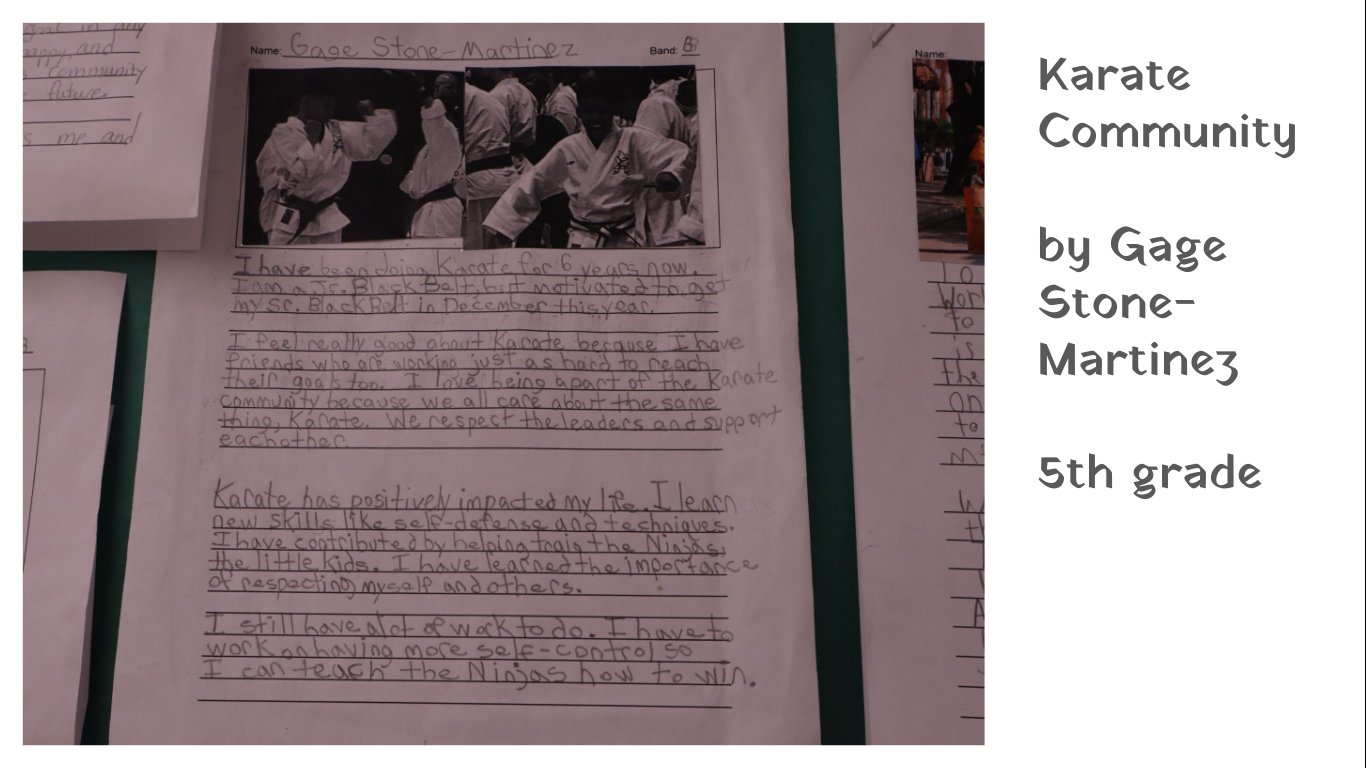 goal in any
happy, and
community
future.
s me and
Name: Gage Stone-Martinez Band: B
I have been doing Karate for 6 years now.
I am a Jr. Black Belt, but motivated to get
my Sr. Black Belt in December this year.
I feel really good about Karate because I have
friends who are working just as hard to reach
their goals too. I love being apart of the Karate
community because we all care about the same
thing, Karate. We respect the leaders and support
eachother.
Karate has positively impacted my life. I learn
new skills like self-defense and techniques.
I have contributed by helping train the Ninjas,
the little kids. I have learned the importance
of respecting myself and others.
I still have alot of work to do. I have to
work on having more self-control so
I can teach the Ninjas how to win.
Name:
to
is
the
on
to
Karate
Community
by Gage
Stone-
Martinez
5th grade